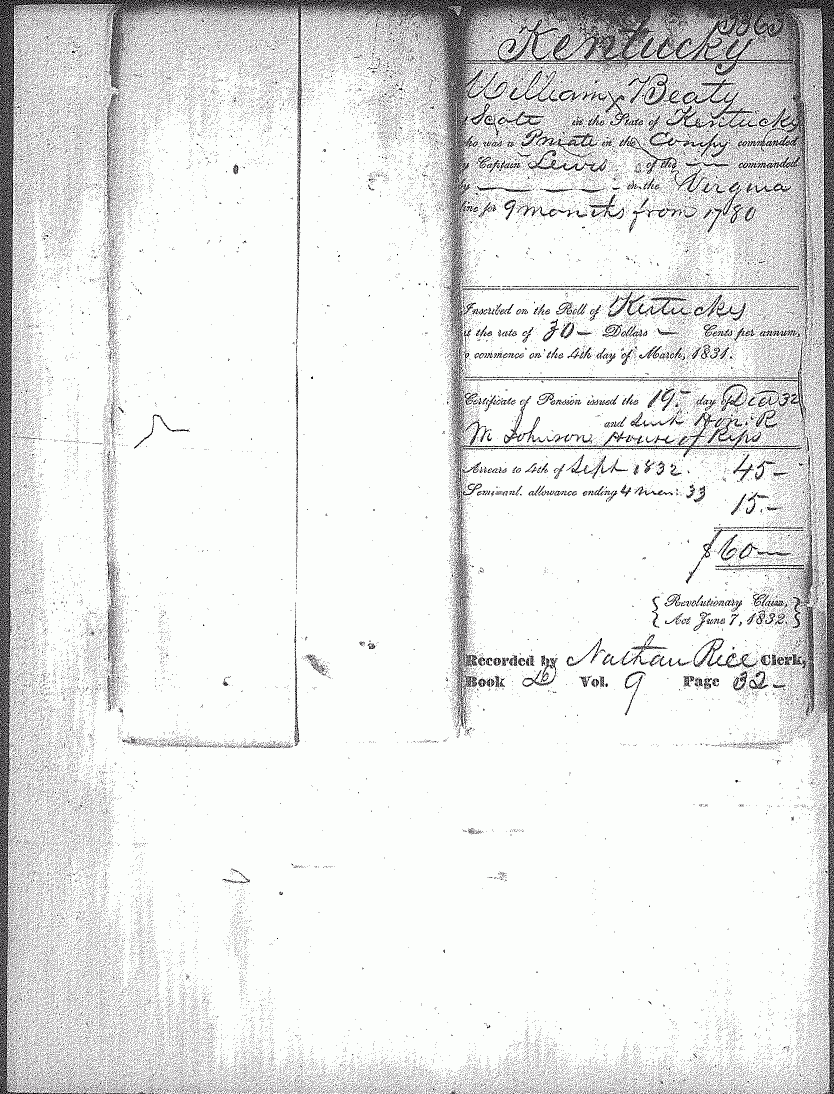 3363
Kentucky
William Beaty
Scott in the State of Kentucky
ho was a Private in the Compy commanded
y Captain Lewis of the — commanded
by — — — — in the Virginia
line for 9 months from 1780
Inscribed on the Roll of Kentucky
at the rate of 30 – Dollars — Cents per annum,
o commence on the 4th day of March, 1831.
Certificate of Pension issued the 19th day of Dec 32
and sent Hon. R
M Johnson House of Reps
Arrears to 4th of Sept 1832. 45 –
Semi-anl. allowance ending 4 Mar: 33
15. –
$60 —
{ Revolutionary Claim, }
{ Act June 7, 1832. }
Recorded by Nathan Rice Clerk,
Book D Vol. 9 Page 32 –